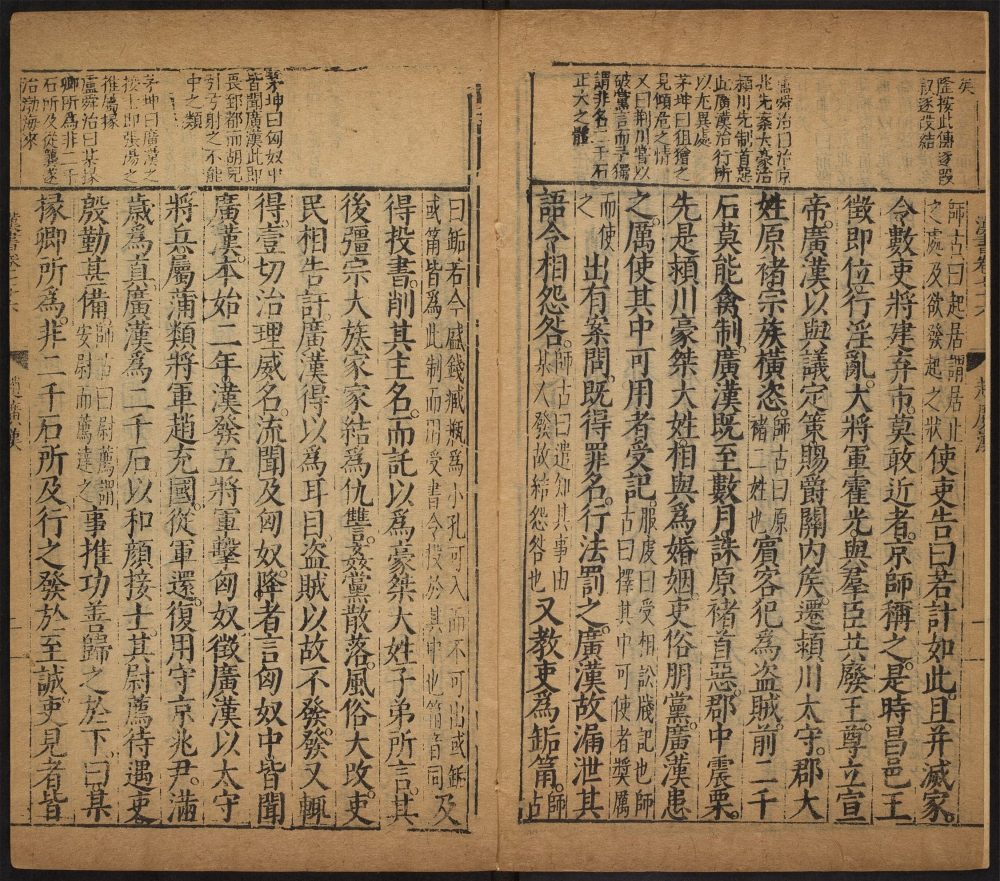 矣
隆按此傳逐段
叙逐段結
盧舜治曰治京
兆先秦大豪治
潁川先制首惡
此廣漢治行所
以尤異處
茅坤曰狙獪之
見傾危之情
又曰荆川嘗以
破黨言而予獨
謂非名二千石
正大之體
漢書卷七十六 趙廣漢
師古曰起居謂居止之處及欲發起之狀使吏告曰若計如此且并滅家
令數吏將建弃市莫敢近者京師稱之是時昌邑王
徵即位行淫亂大將軍霍光與羣臣共廢王尊立宣
帝廣漢以與議定策賜爵關内矦遷潁川太守郡大
姓原褚宗族橫恣師古曰原褚二姓也賓客犯為盜賊前二千
石莫能禽制廣漢既至數月誅原褚首惡郡中震栗
先是潁川豪桀大姓相與為婚姻吏俗朋黨廣漢患
之厲使其中可用者受記服虔曰受相訟牋記也師古曰擇其中可使者獎厲
而使之出有案問既得罪名行法罰之廣漢故漏泄其
語令相怨咎師古曰遣知其事由某人發故結怨咎也又教吏為缿筩師古
曰缿若今盛錢臧瓶為小孔可入而不可出或缿或筩皆為此制而用受書令投於其中也筩音同及
得投書削其主名而託以為豪桀大姓子弟所言其
後彊宗大族家家結為仇讐姦黨散落風俗大改吏
民相告訐廣漢得以為耳目盜賊以故不發發又輒
得壹切治理威名流聞及匈奴降者言匈奴中皆聞
廣漢本始二年漢發五將軍擊匈奴徵廣漢以太守
將兵屬蒲類將軍趙充國從軍還復用守京兆尹滿
歲為真廣漢為二千石以和顔接士其尉薦待遇吏
殷勤甚備師古曰尉薦謂安尉而薦達之事推功善歸之於下曰某
掾卿所為非二千石所及行之發於至誠吏見者皆
茅坤曰匈奴中
皆聞廣漢此即
畏郅都而胡兒
引弓射之不能
中之類
茅坤曰廣漢之
接士即張湯之
推屬掾
盧舜治曰某掾
卿所為非二千
石所及從龔遂
治渤海來
漢書卷七十六 趙廣漢